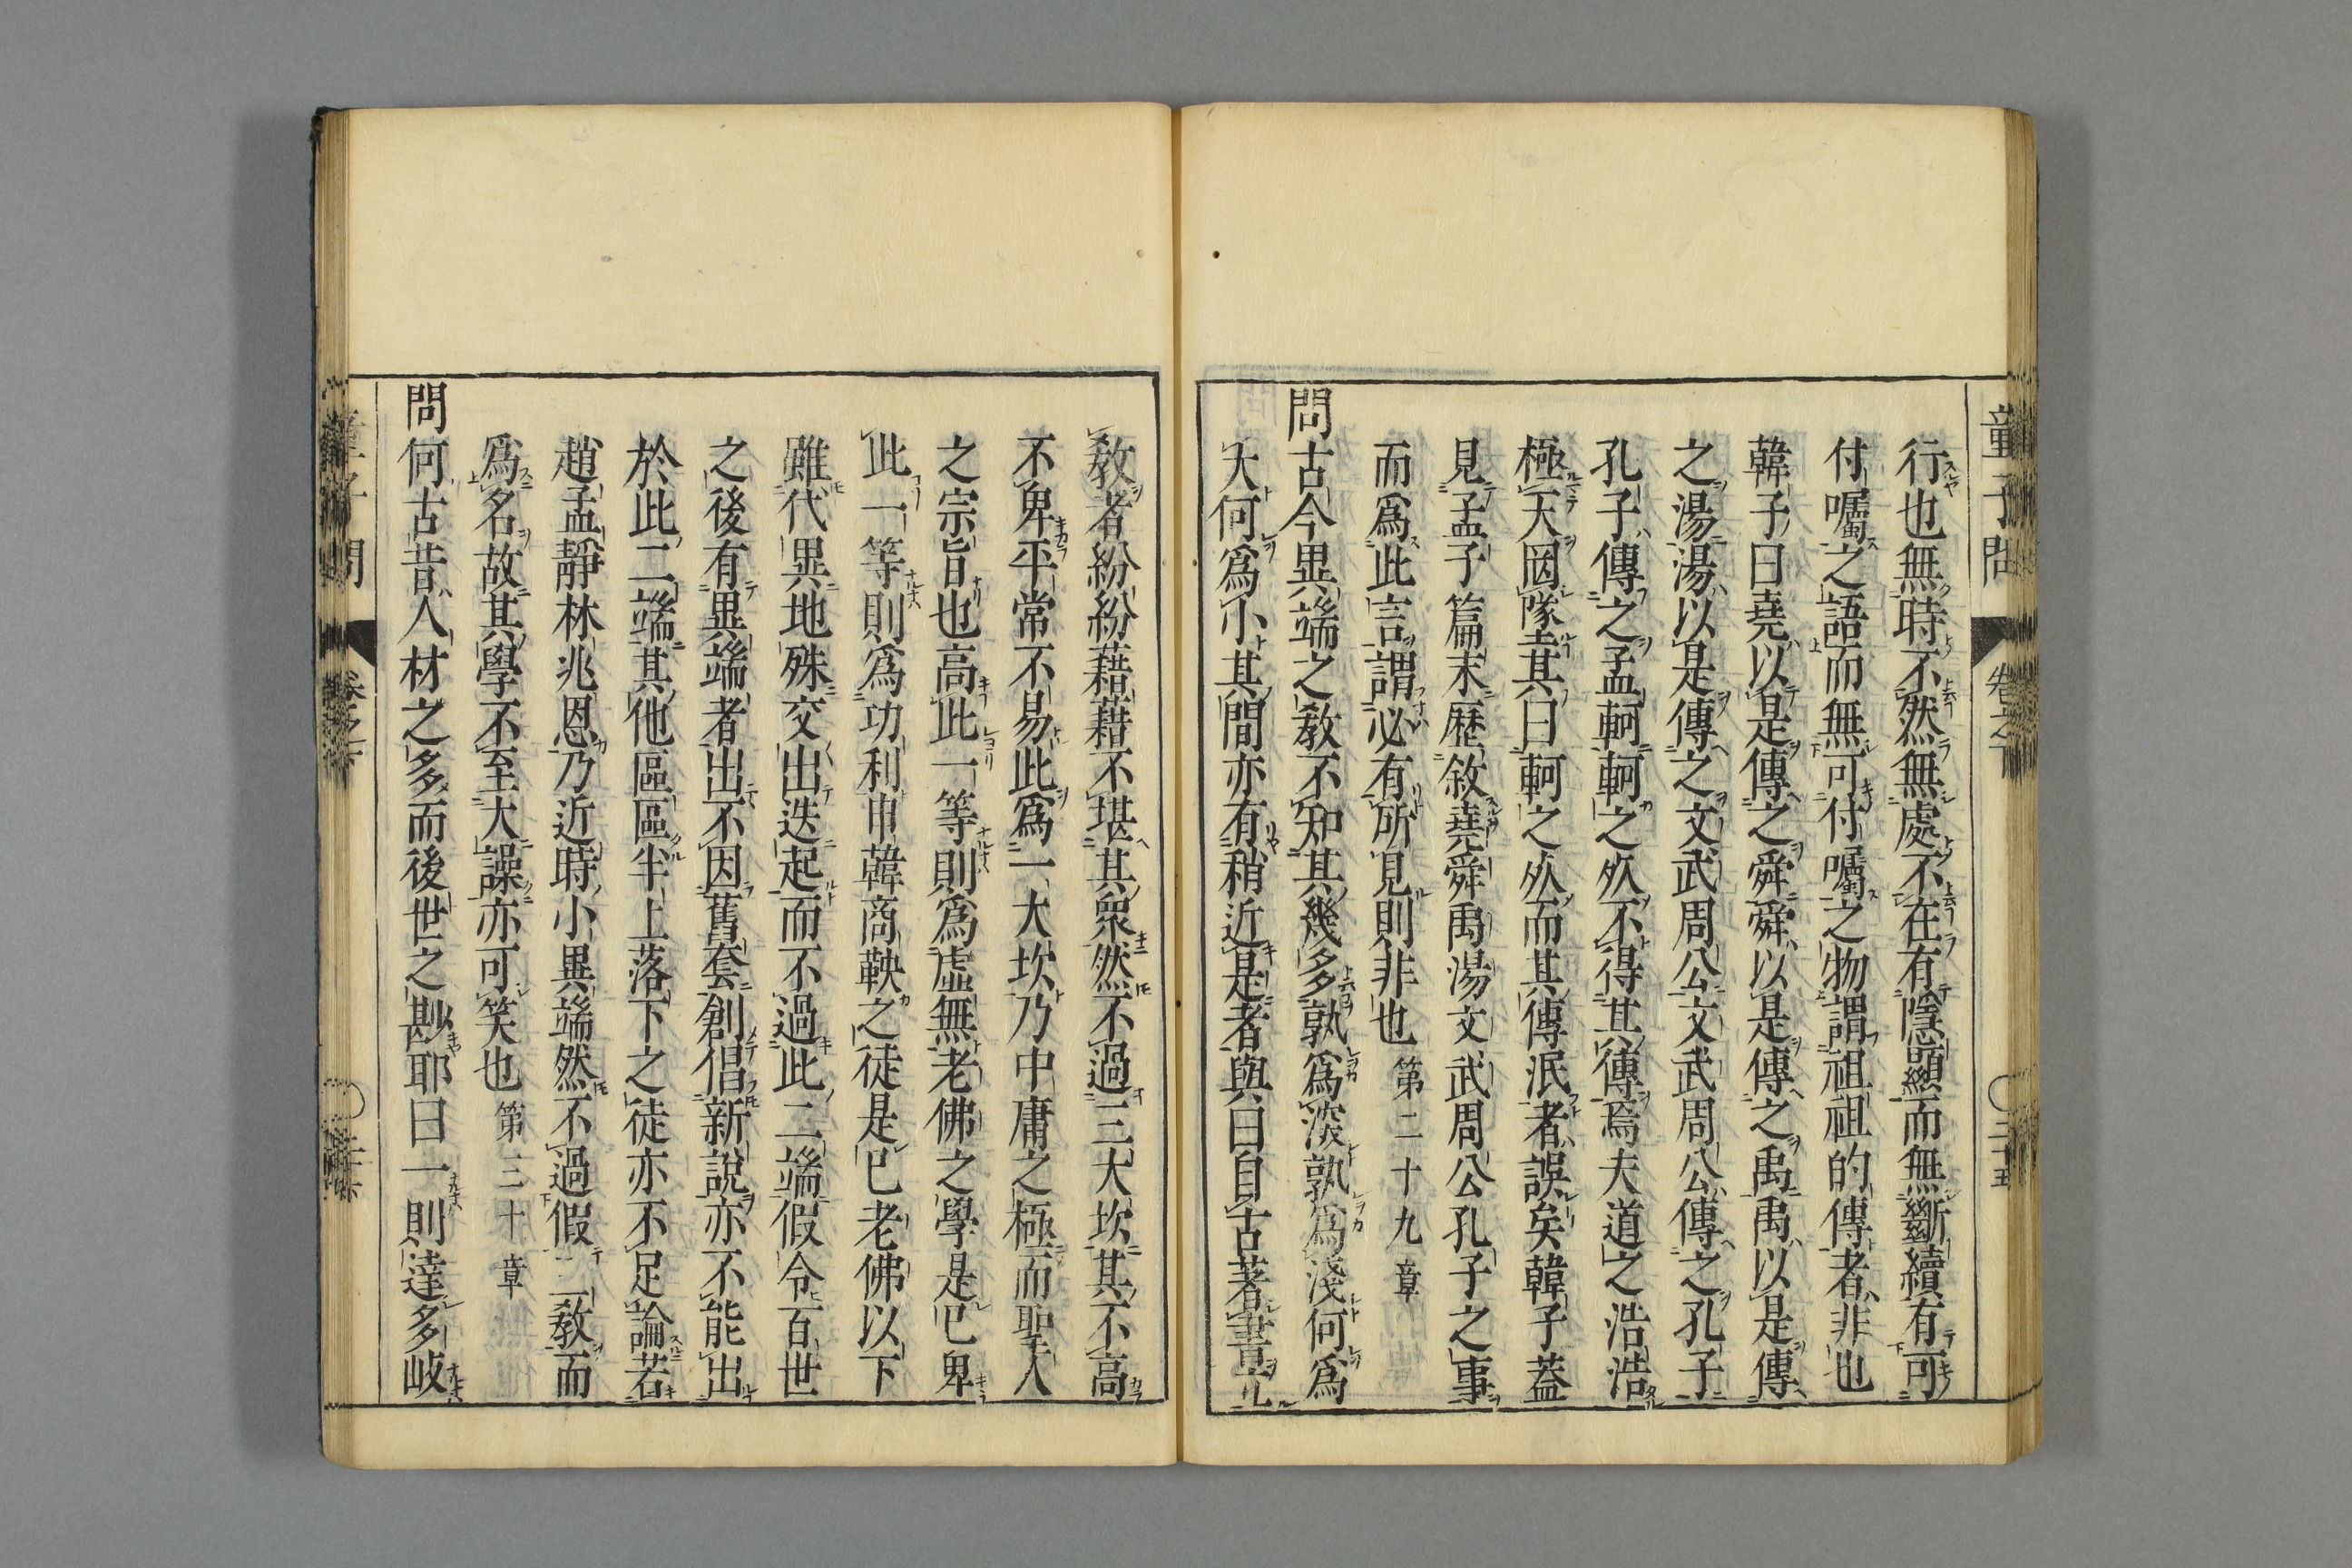 童子問 卷之下 〇三十五
行也無時不然無處不在有隱顯而無斷續有可
付囑之語而無可付囑之物謂祖祖的傳者非也
韓子曰堯以是傳之舜舜以是傳之禹禹以是傳
之湯湯以是傳之文武周公文武周公傳之孔子
孔子傳之孟軻軻之死不得其傳焉夫道之浩浩
極天罔墜其曰軻之死而其傳泯者誤矣韓子蓋
見孟子篇末歷敘堯舜禹湯文武周公孔子之事
而爲此言謂必有所見則非也 第二十九章
問古今異端之教不知其幾多孰爲深孰爲淺何爲
大何爲小其間亦有稍近是者與曰自古著書立
教者紛紛藉藉不堪其衆然不過三大坎其不高
不卑平常不易此爲一大坎乃中庸之極而聖人
之宗旨也高此一等則爲虛無老佛之學是已卑
此一等則爲功利申韓商鞅之徒是已老佛以下
雖代異地殊交出迭起而不過此二端假令百世
之後有異端者出不因舊套創倡新說亦不能出
於此二端其他區區半上落下之徒亦不足論若
趙孟靜林兆恩乃近時小異端然不過假三教而
爲名故其學不至大譟亦可笑也 第三十章
問何古昔人材之多而後世之尠耶曰一則達多岐
童子問 卷之下